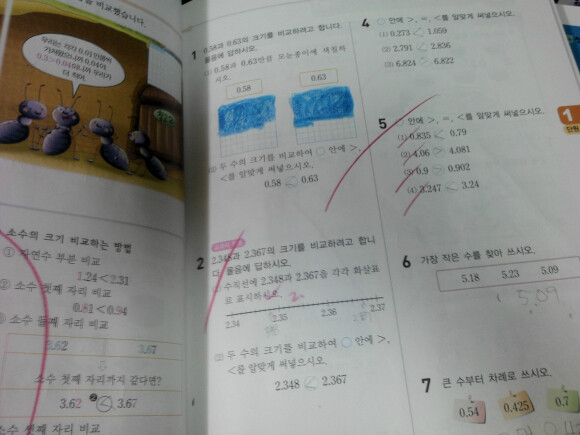 비교했습니다.
우리는 각각 0.01만큼씩
가져왔으니까 0.04야.
0.3>0.04이니까 우리가
더 적어.
소수의 크기 비교하는 방법
① 자연수 부분 비교
1.24<2.31
② 소수 첫째 자리 비교
0.81<0.94
③ 소수 둘째 자리 비교
3.62 3.67
소수 첫째 자리까지 같다면?
3.62 < 3.67
소수 셋째 자리 비교
1 0.58과 0.63의 크기를 비교하려고 합니다.
물음에 답하시오.
(1) 0.58과 0.63만큼 모눈종이에 색칠하
시오.
0.58 0.63
(2) 두 수의 크기를 비교하여 ○ 안에 >,
<를 알맞게 써넣으시오.
0.58 < 0.63
2 2.348과 2.367의 크기를 비교하려고 합니
다. 물음에 답하시오.
(1) 수직선에 2.348과 2.367을 각각 화살표
로 표시하시오.
2.34 2.35 2.36 2.37
(2) 두 수의 크기를 비교하여 ○ 안에 >,
<를 알맞게 써넣으시오.
2.348 < 2.367
4 ○ 안에 >, =, <를 알맞게 써넣으시오.
(1) 0.273 < 1.059
(2) 2.791 < 2.836
(3) 6.824 > 6.822
5 ○ 안에 >, =, <를 알맞게 써넣으시오.
(1) 0.835 < 0.79
(2) 4.06 > 4.081
(3) 0.9 > 0.902
(4) 3.247 < 3.24
1
단원
6 가장 작은 수를 찾아 쓰시오.
5.18 5.23 5.09
5.09
7 큰 수부터 차례로 쓰시오.
0.54 0.425 0.7